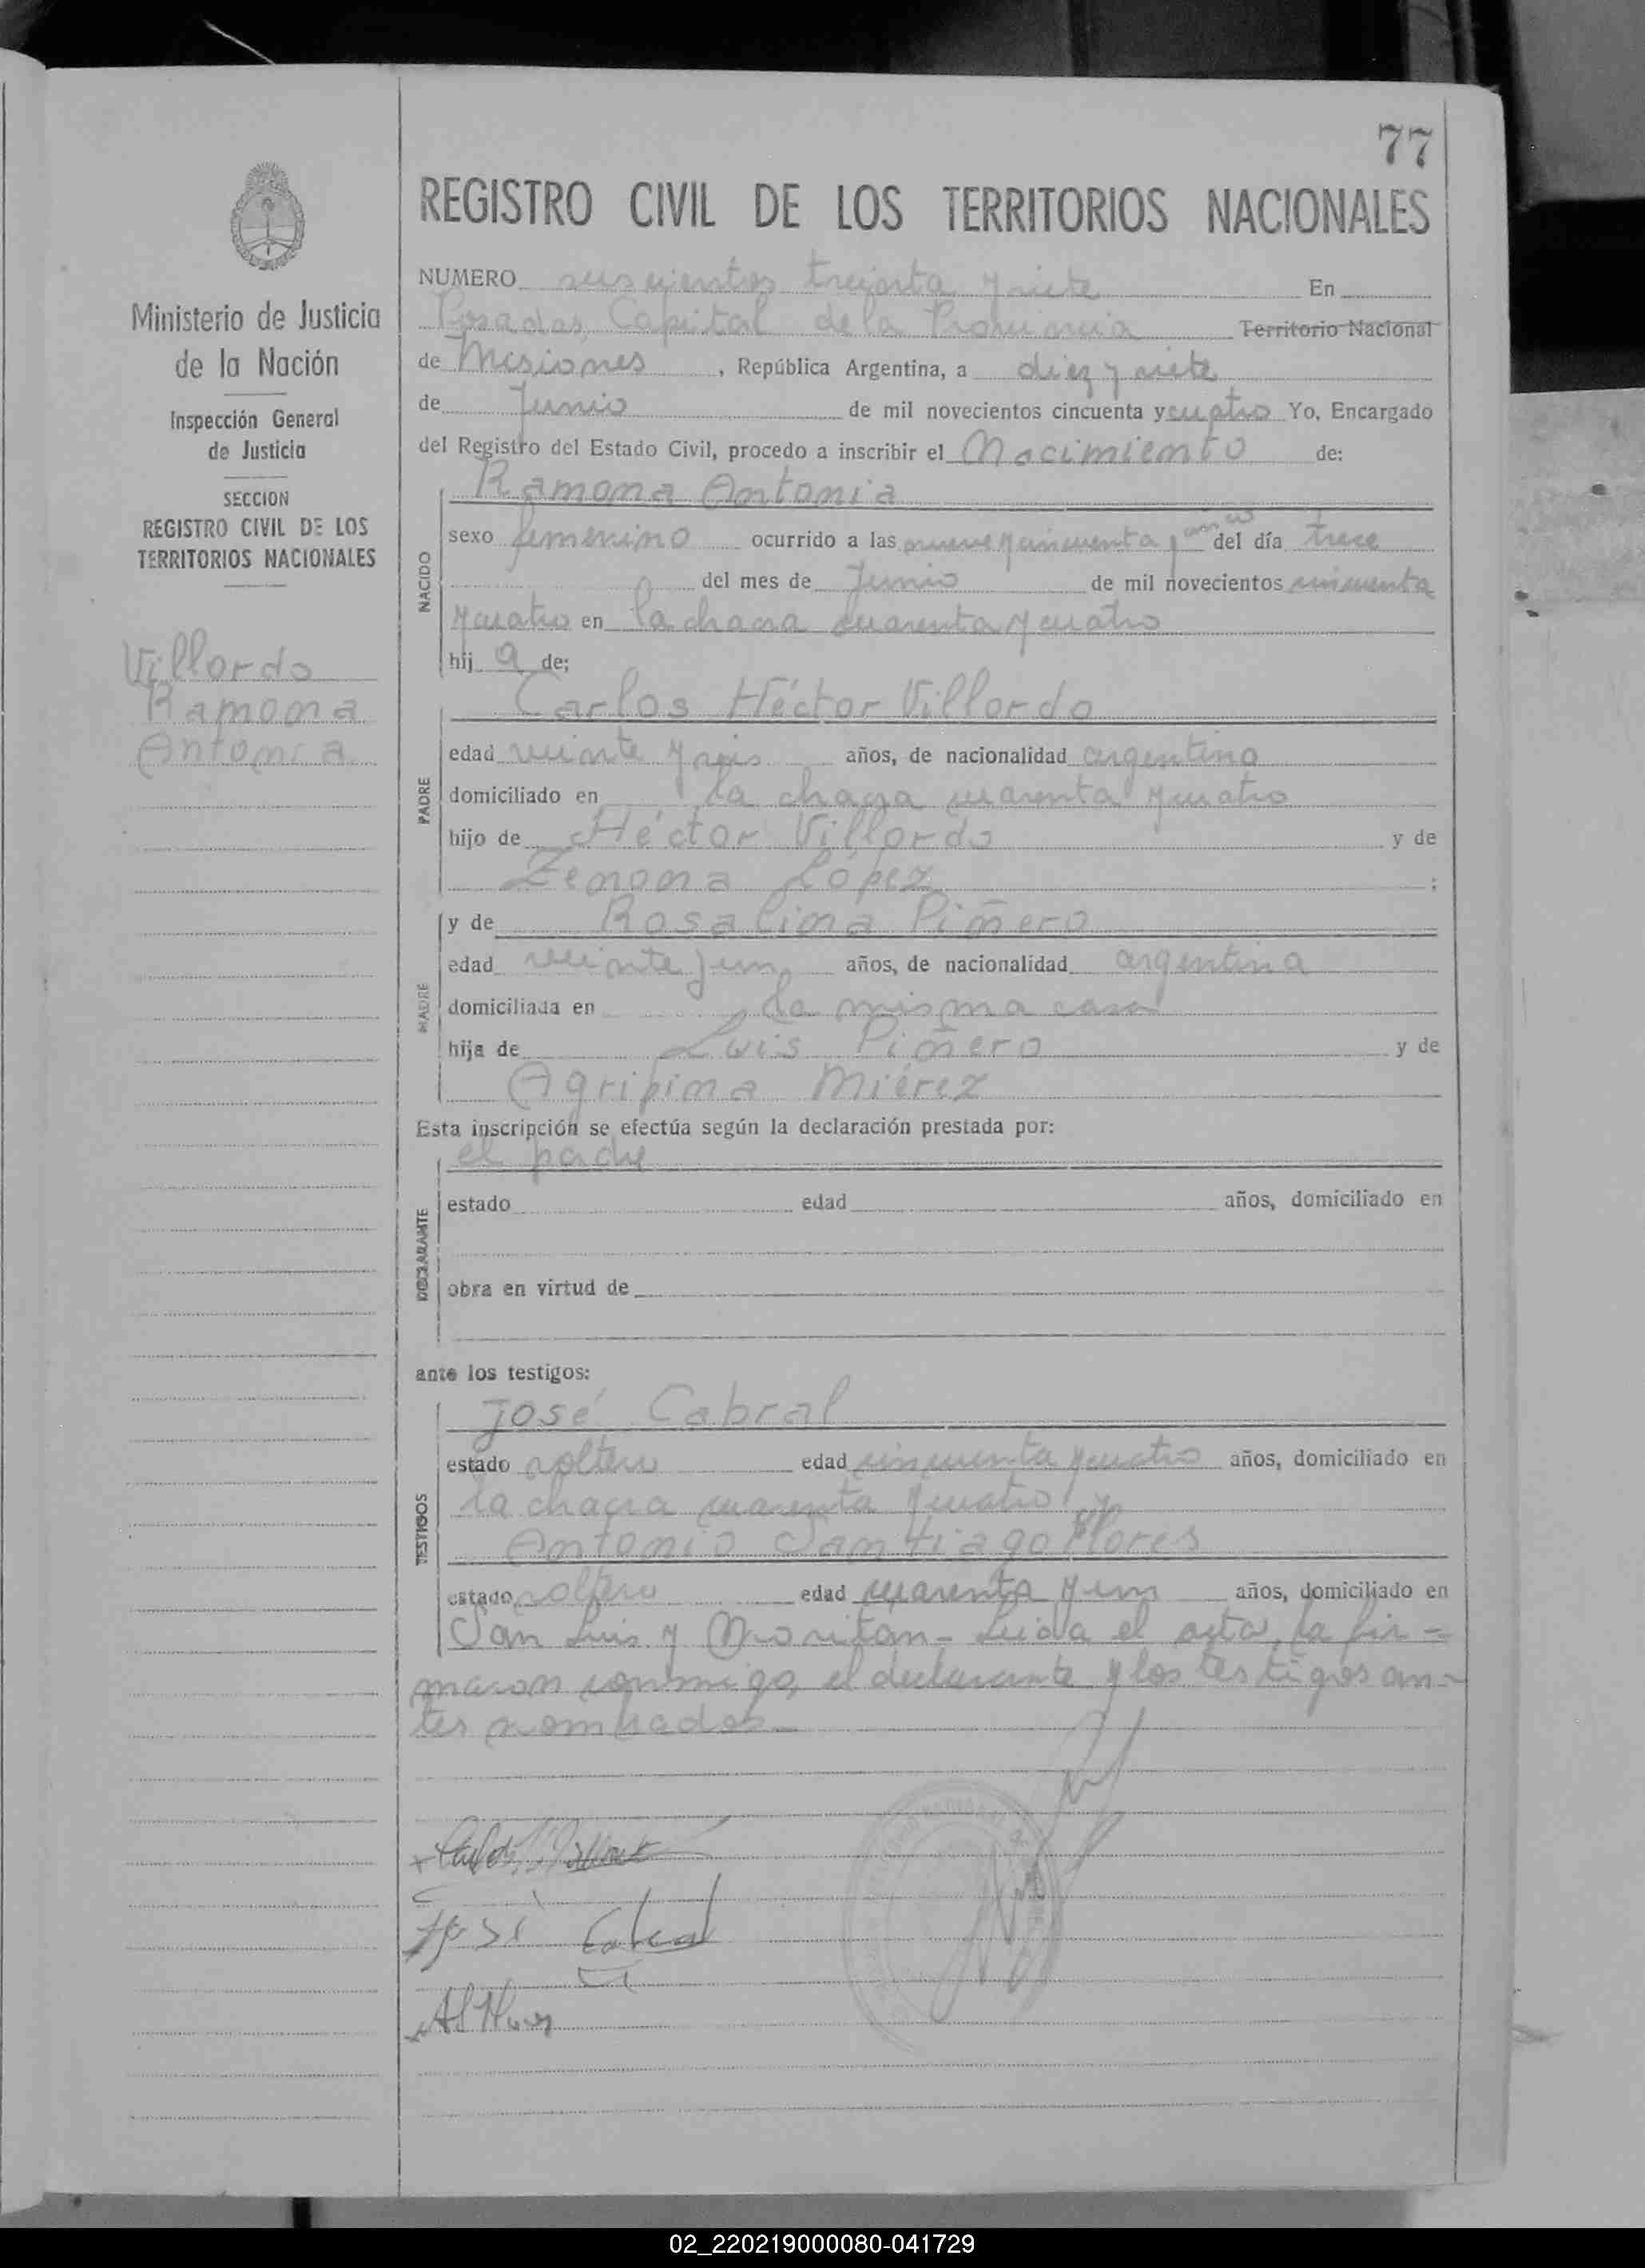 77
REGISTRO CIVIL DE LOS TERRITORIOS NACIONALES
Ministerio de Justicia
de la Nación
Inspección General
de Justicia
SECCION
REGISTRO CIVIL DE LOS
TERRITORIOS NACIONALES
Villordo
Ramona
Antonia
NUMERO seiscientos treinta y siete En
Posadas, Capital de la Provincia Territorio Nacional
de Misiones, República Argentina, a diez y siete
de Junio de mil novecientos cincuenta y cuatro Yo, Encargado
del Registro del Estado Civil, procedo a inscribir el Nacimiento de:
Ramona Antonia
NACIDO
sexo femenino ocurrido a las nueve y cincuenta del día trece
del mes de Junio de mil novecientos cincuenta
y cuatro en la chacra cuarenta y cuatro
hij a de;
Carlos Héctor Villordo
PADRE
edad veinte y seis años, de nacionalidad argentino
domiciliado en la chacra cuarenta y cuatro
hijo de Héctor Villordo y de
Zenona López ;
MADRE
y de Rosalina Piñero
edad veinte y un años, de nacionalidad argentina
domiciliada en la misma casa
hija de Luis Piñero y de
Agripina Miérez
Esta inscripción se efectúa según la declaración prestada por:
el padre
DECLARANTE
estado edad años, domiciliado en
obra en virtud de
ante los testigos:
José Cabral
TESTIGOS
estado soltero edad cincuenta y cuatro años, domiciliado en
la chacra cuarenta y cuatro y
Antonio Santiago Flores
estado soltero edad cuarenta y un años, domiciliado en
San Luis y - Leida el acta, la fir=
maron conmigo, el declarante y los testigos an-
tes nombrados.-
José Cabral
02_220219000080-041729